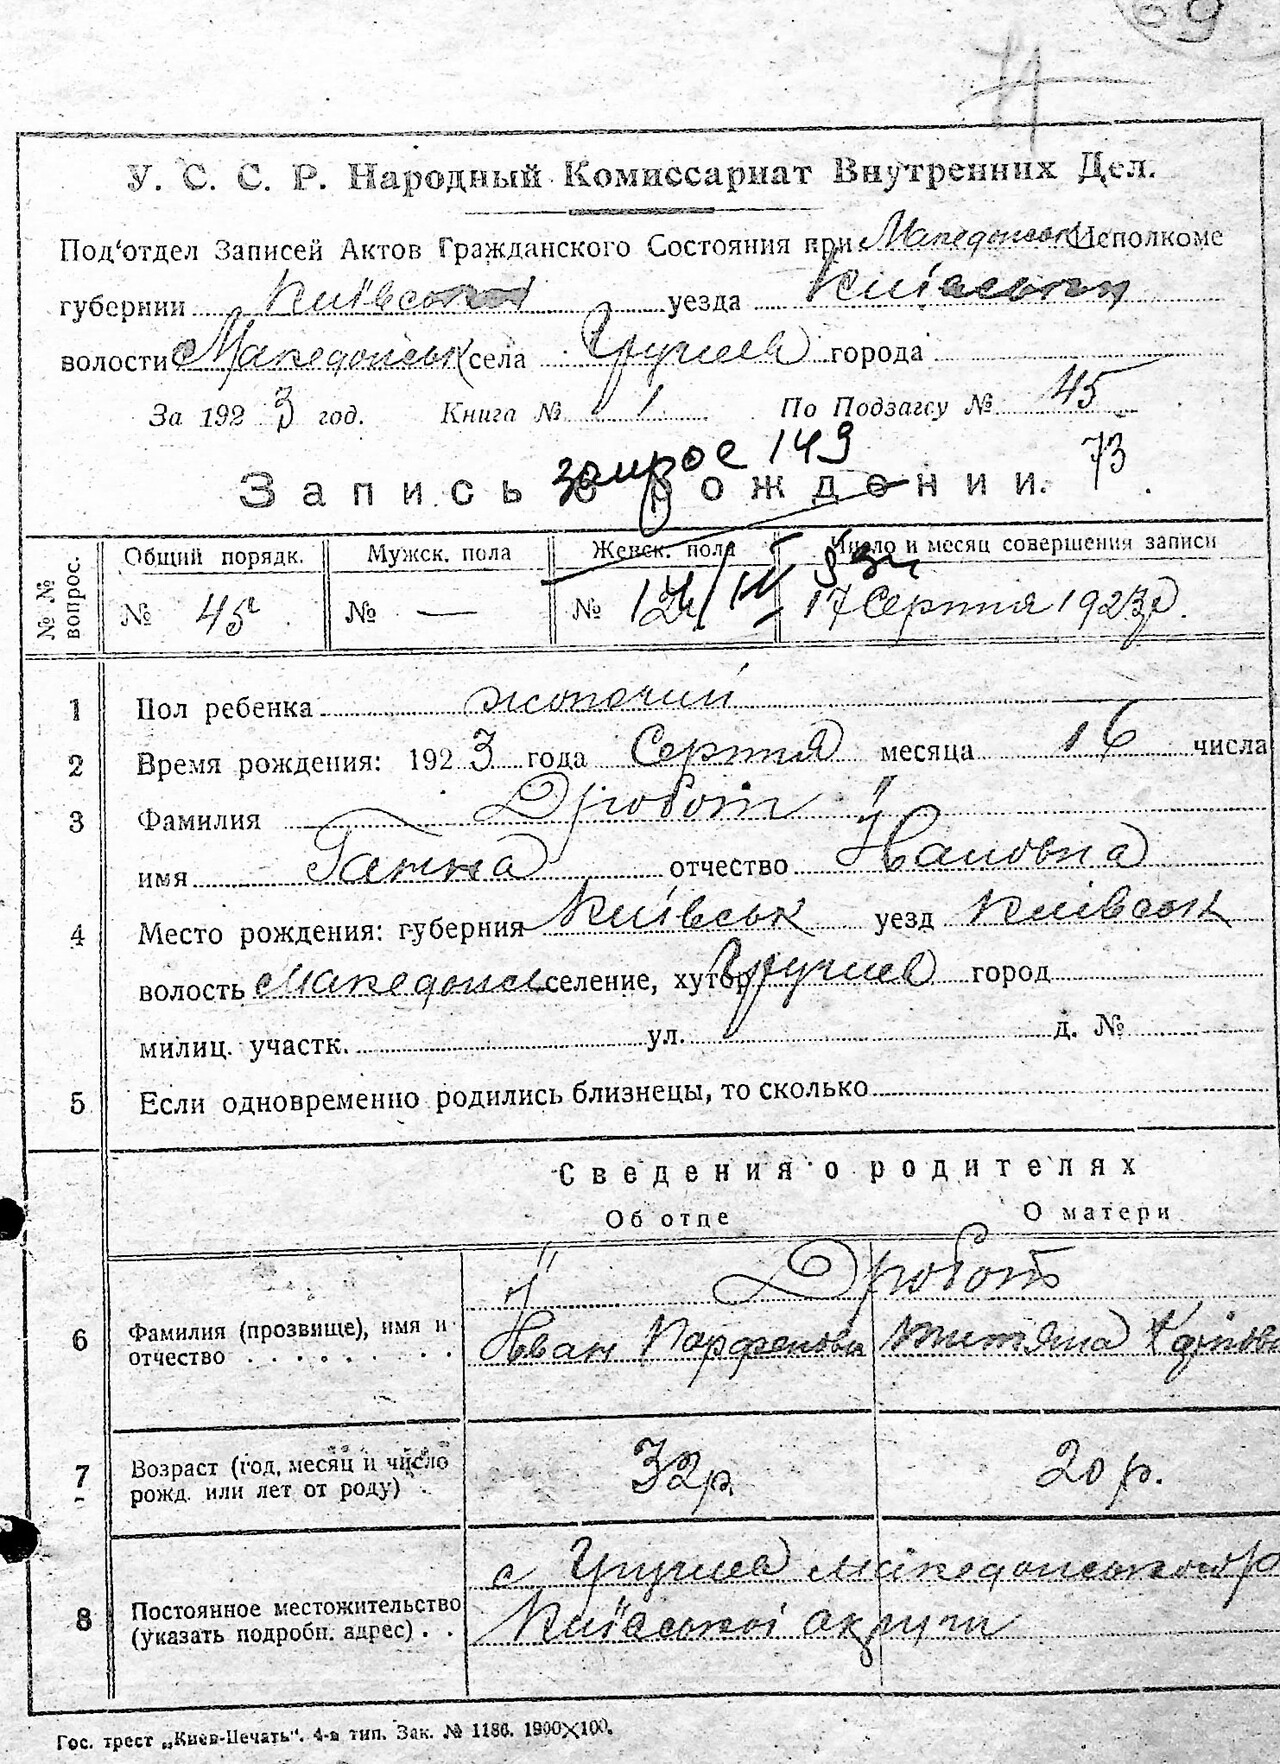 69
71
У. С. С. Р. Народный Комиссариат Внутренних Дел.
Под‘отдел Записей Актов Гражданского Состояния при Македонськ Исполкоме
губернии Київської уезда Київський
волости Македонськ села города
За 1923 год. Книга № 1 По Подзагсу № 45
запрос 149 73
Запись о рождении.
№№ вопрос. Общий порядк. Мужск. пола Женск. пола Число и месяц совершения записи
№ 45 № — № 17 Серпня 1923р.
1 Пол ребенка жіночий
2 Время рождения: 1923 года Серпня месяца 16 числа
3 Фамилия Дробот
имя Ганна отчество Ивановна
4 Место рождения: губерния Київськ уезд Київськ
волость Македонск селение, хутор город
милиц. участк. ул. д. №
5 Если одновременно родились близнецы, то сколько
Сведения о родителях
Об отце О матери
Дробот
6 Фамилия (прозвище), имя и отчество . . . . . . . . Иван Парфенови
7 Возраст (год, месяц и число рожд. или лет от роду) . 32р. 20 р.
с Македонського р
8 Постоянное местожительство (указать подробн. адрес) . . Київської округи
Гос. трест „Киев-Печать“. 4-я тип. Зак. № 1186. 1900×100.